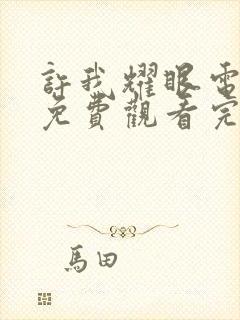 許我耀眼電
免費觀看完
馬田